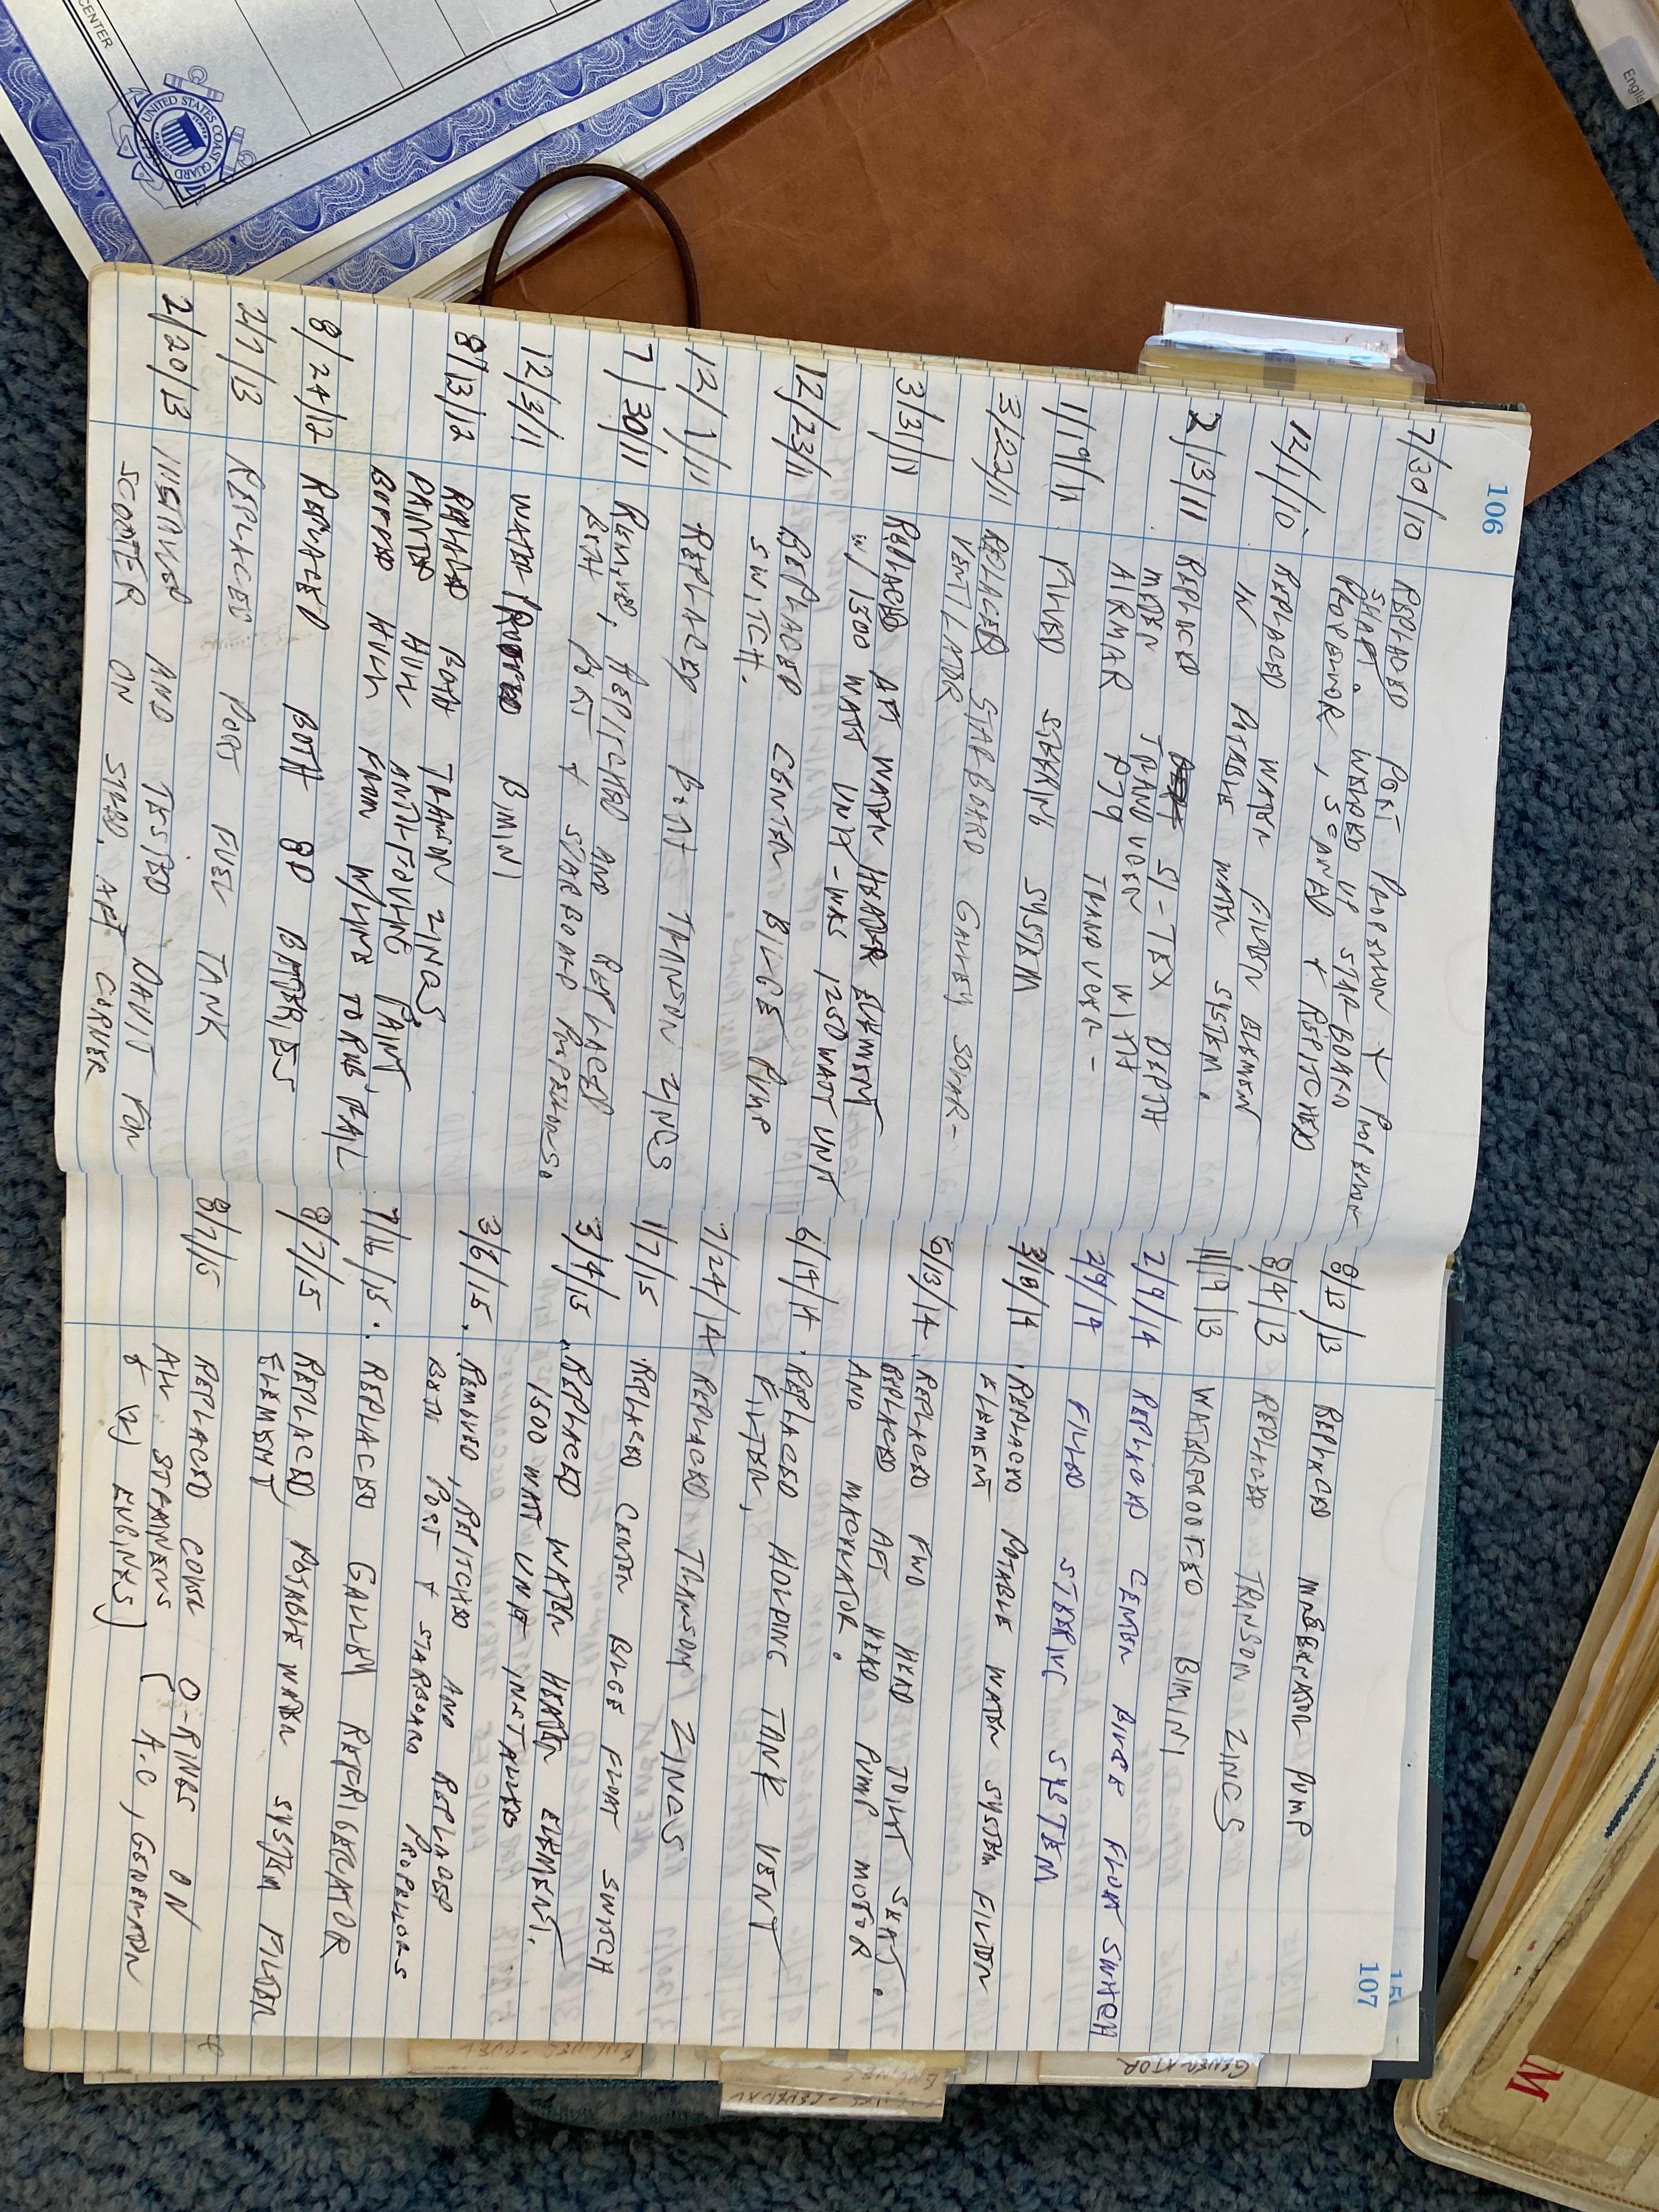 CENTER
UNITED STATES COAST GUARD
Englis
106
7/30/10 REPLACED PORT PROPELLER & PROPELLER
SHAFT. WELDED UP STARBOARD
PROPELLER, SCANED & REPITCHED
12/1/10 REPLACED WATER FILTER ELEMENT
IN POTABLE WATER SYSTEM.
2/13/11 REPLACED SI-TEX DEPTH
METER TRANDUCER WITH
AIRMAR P79 TRANDUCER -
1/19/11 FILLED STEERING SYSTEM
3/22/11 REPLACED STARBOARD GALLEY SOLAR-
VENTILATOR
3/31/11 REPLACED AFT WATER HEATER ELEMENT
W/ 1500 WATT UNIT - WAS 1250 WATT UNIT
12/23/11 REPLACED CENTER BILGE PUMP
SWITCH.
12/1/11 REPLACED BOTH TRANSON ZINCS
7/30/11 REMOVED, REPITCHED AND REPLACED
BOTH PORT & STARBOARD PROPELLORS.
12/3/11 WATER PROOFED BIMINI
8/13/12 REPLACED BOTH TRANSON ZINCS
PAINTED HULL ANTI-FOULING PAINT
BUFFED HULL FROM W/LINE TO RUB RAIL
8/24/12 REPLACED BOTH 8D BATTERIES
2/7/13 REPLACED PORT FUEL TANK
2/20/13 INSTALLED AND TESTED DAVIT FOR
SCOOTER ON STBD. AFT CORNER
15
107
8/13/13 REPLACED MACERATOR PUMP
8/4/13 REPLACED TRANSOM ZINCS
11/9/13 WATERPROOFED BIMINI
2/9/14 REPLACED CENTER BILGE FLOAT SWITCH
2/9/14 FILLED STEERING SYSTEM
3/8/14 REPLACED POTABLE WATER SYSTEM FILTER
ELEMENT
6/13/14 REPLACED FWD HEAD TOILET SEAT.
REPLACED AFT HEAD PUMP MOTOR
AND MACERATOR.
6/14/14 REPLACED HOLDING TANK VENT
FILTER,
7/24/14 REPLACED TRANSOM ZINCS
1/7/15 REPLACED CENTER BILGE FLOAT SWITCH
3/4/15 REPLACED WATER HEATER ELEMENT.
1500 WATT UNIT INSTALLED
3/6/15. REMOVED, REPITCHED AND REPLACED
BOTH PORT & STARBOARD PROPELLORS
7/16/15. REPLACED GALLEY REFRIGERATOR
8/7/15 REPLACED POTABLE WATER SYSTEM FILTER
ELEMENT
8/7/15 REPLACED COVER O-RINGS ON
ALL STRAINERS (A.C, GENERATOR
& (2) ENGINES)
GENERATOR
M